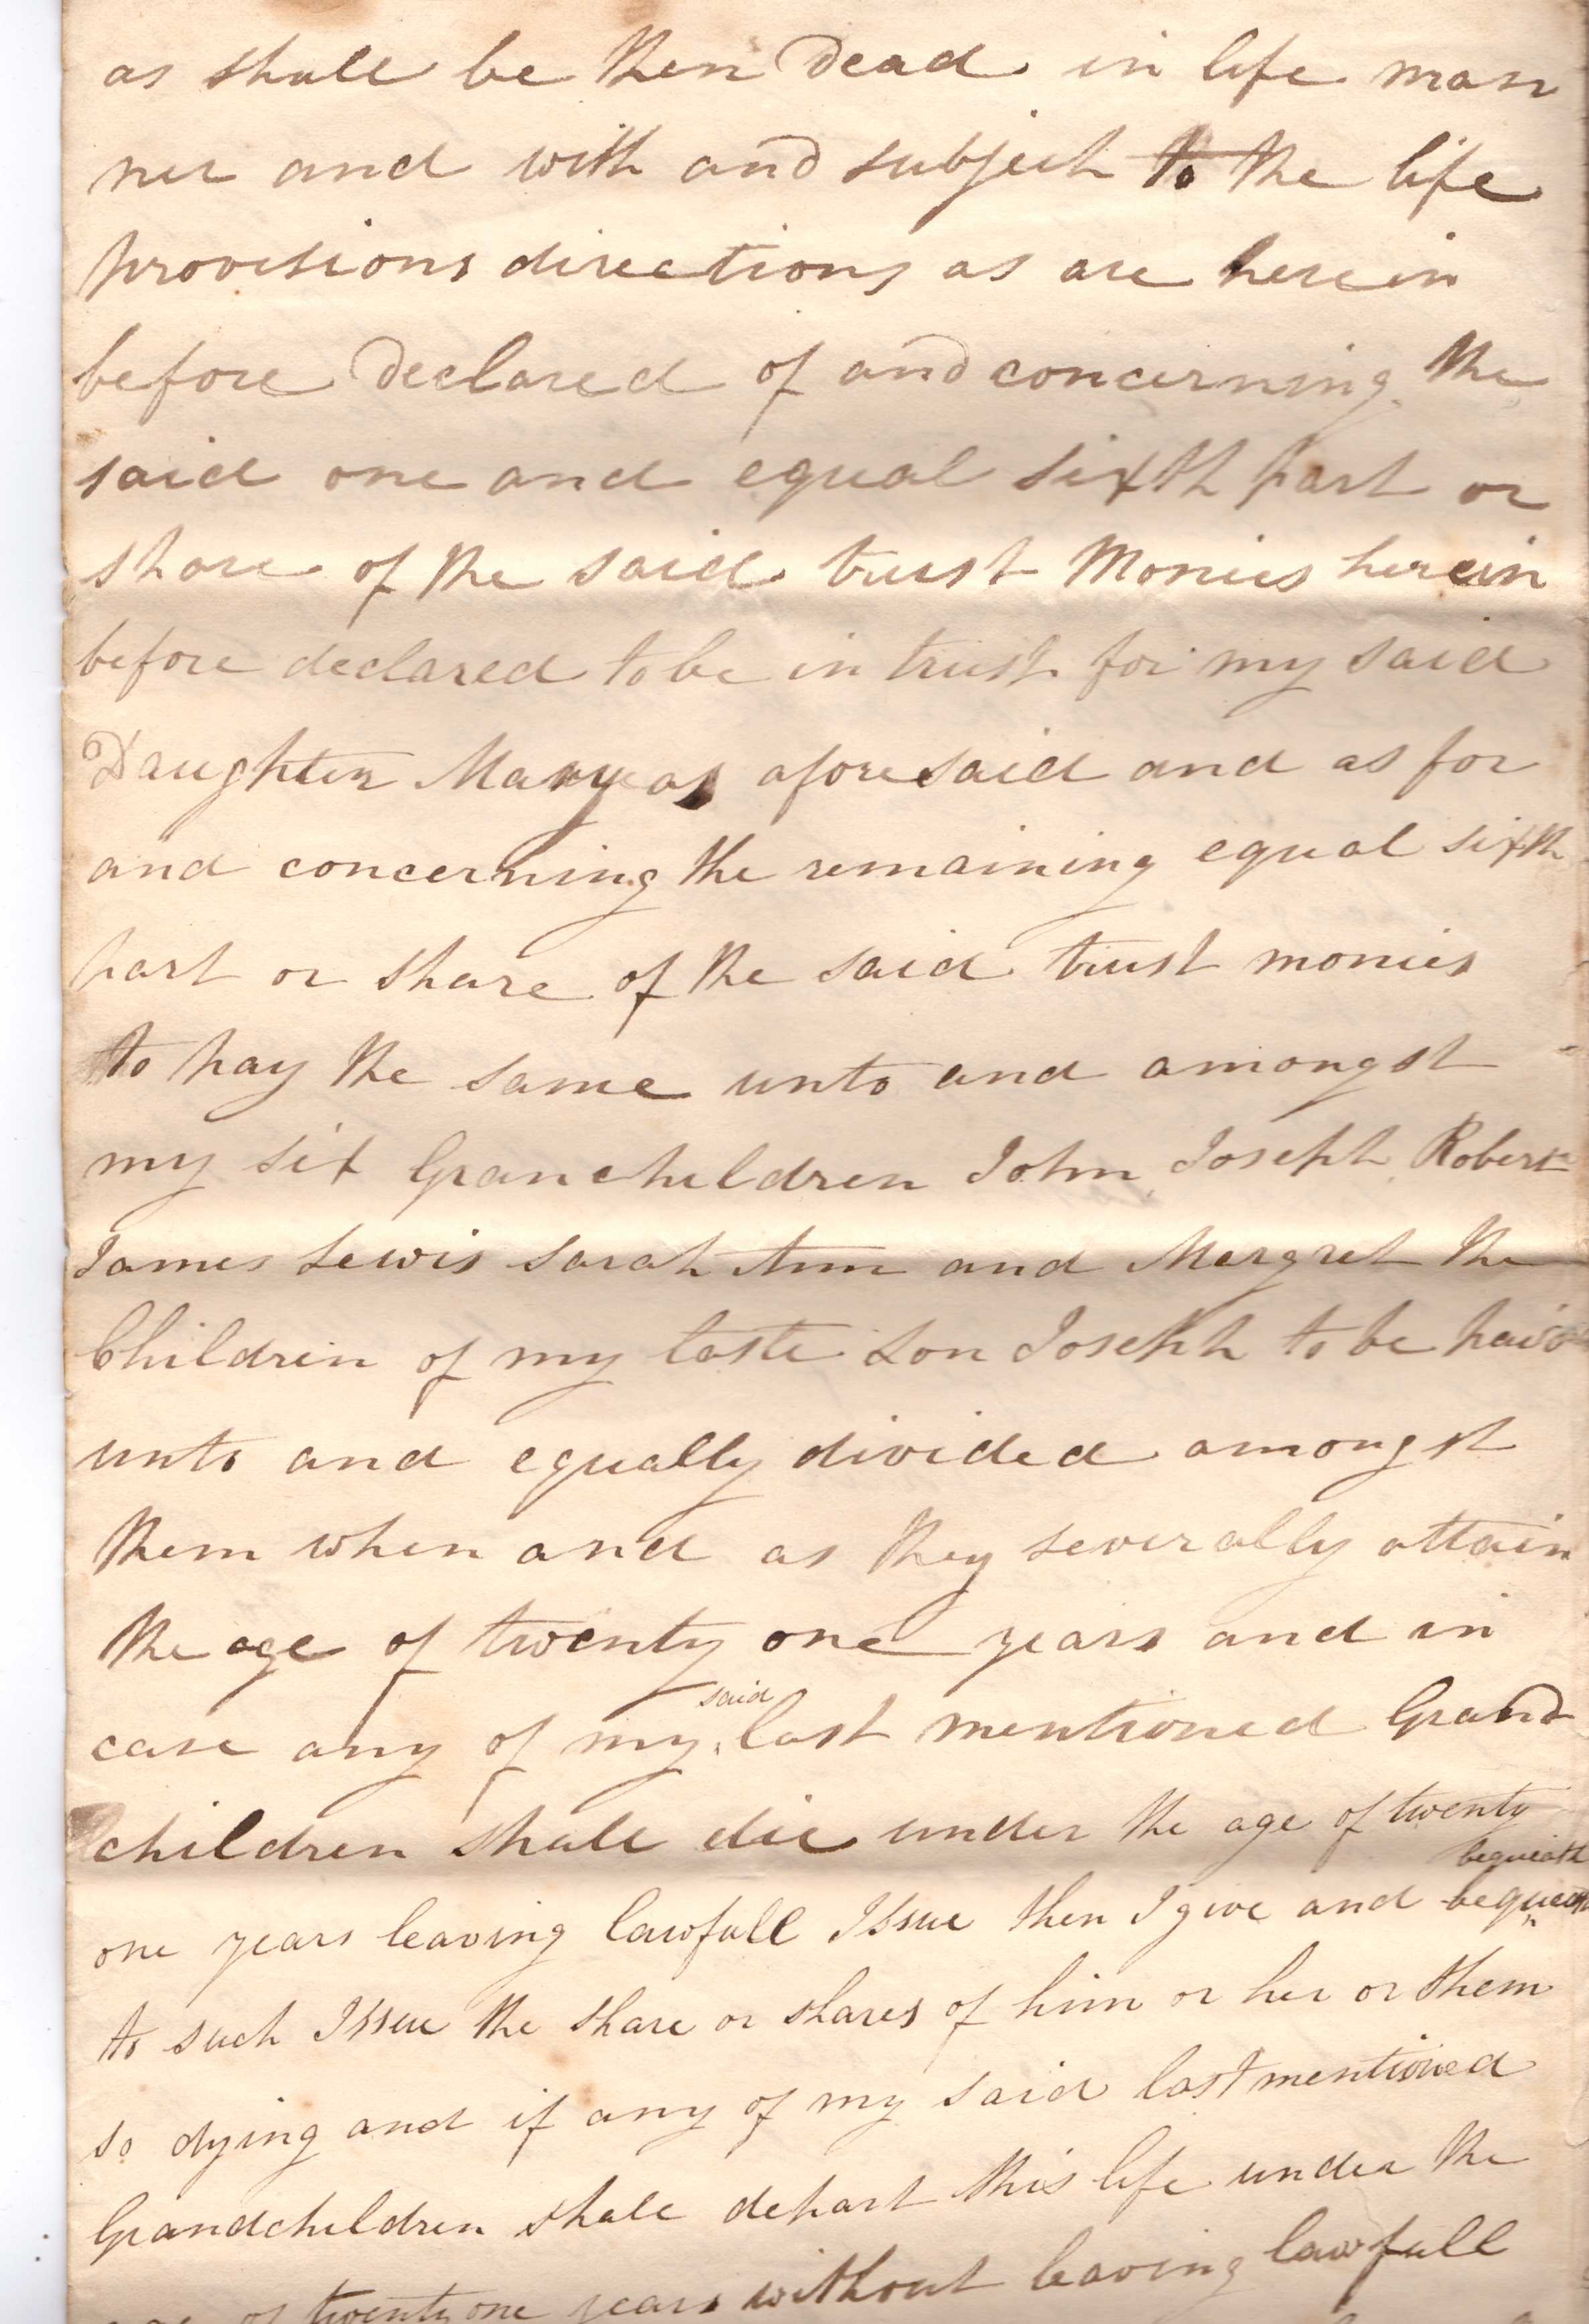 as shall be then Dead in life man
ner and with and subject to the life
provisions directions as are herein
before Declared of and concerning the
said one and equal sixth part or
share of the said trust Monies herein
before declared to be in trust for my said
Daughter Mary as aforesaid and as for
and concerning the remaining equal sixth
part or share of the said trust monies
to pay the same unto and amongst
my six Granchildren John Joseph Robert
James Lewis Sarah Ann and Margret the
Children of my laste Son Joseph to be paid
unto and equally divided amongst
them when and as they severally attain
the age of twenty one years and in
case any of my said last mentioned Grand
children shall die under the age of twenty
bequeath
one years leaving lawfull Issue then I give and
to such Issue the share or shares of him or her or them
so dying and if any of my said last mentioned
Grandchildren shall depart this life under the
age of twenty one years without leaving lawfull